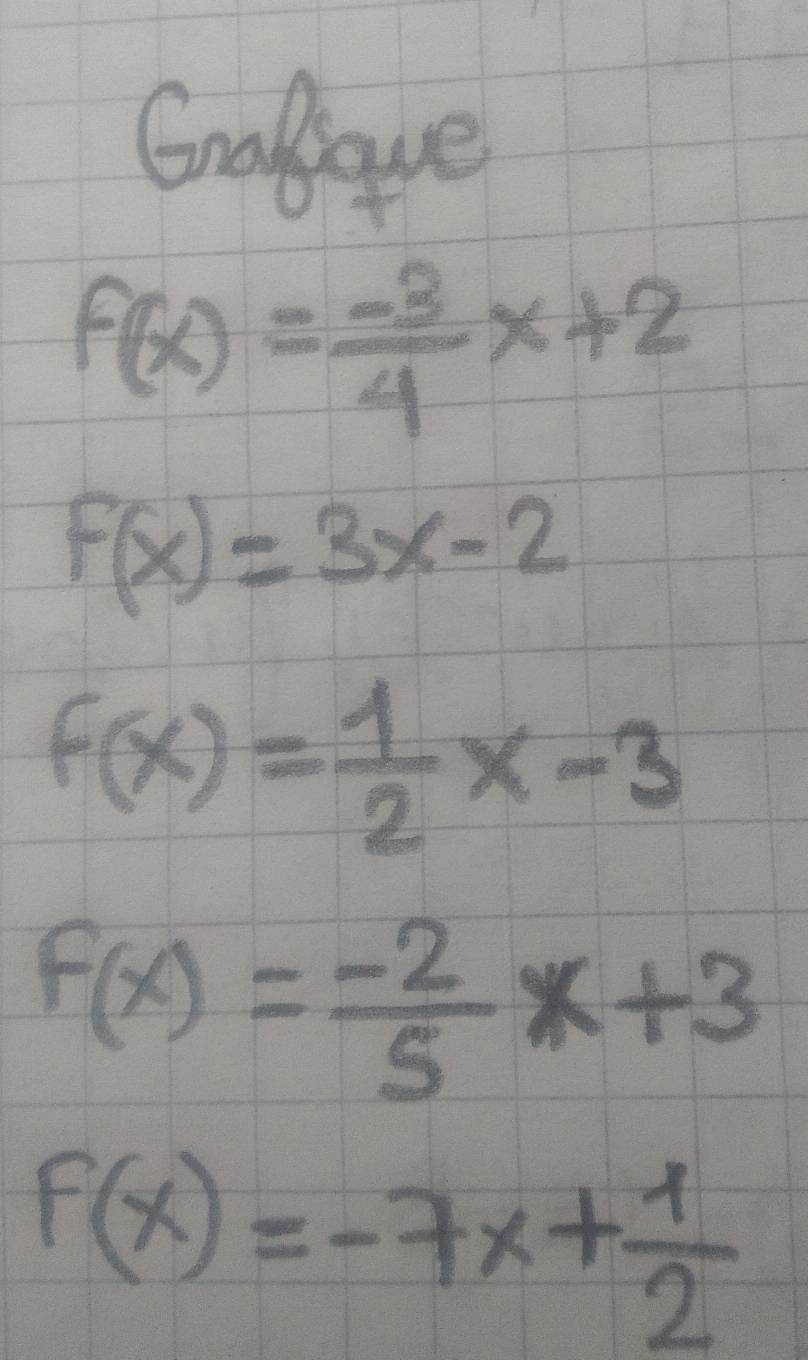 Grafique
F(x) = -3/4 x + 2
F(x) = 3x - 2
F(x) = 1/2 x - 3
F(x) = -2/5 x + 3
F(x) = -7x + 1/2